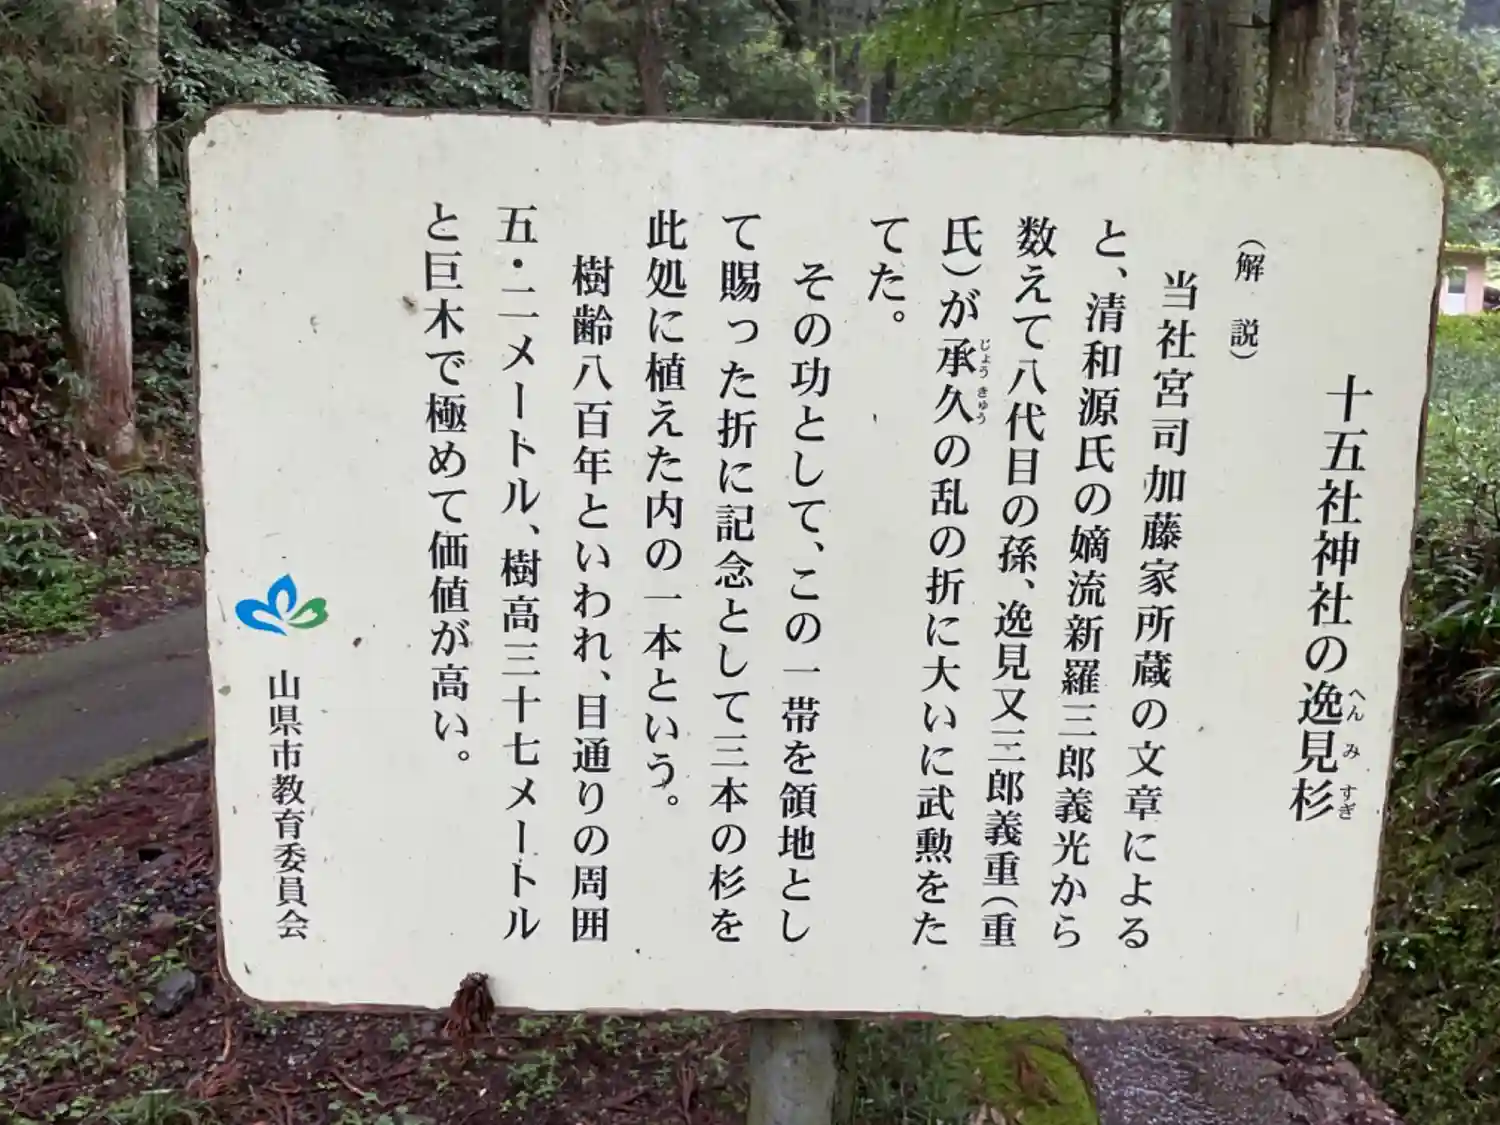 十五社神社の逸見杉
へんみすぎ
（解説）
当社宮司加藤家所蔵の文章による
と、清和源氏の嫡流新羅三郎義光から
数えて八代目の孫、逸見又三郎義重（重
氏）が承久の乱の折に大いに武勲をた
じょうきゅう
てた。
その功として、この一帯を領地とし
て賜った折に記念として三本の杉を
此処に植えた内の一本という。
樹齢八百年といわれ、目通りの周囲
五・二メートル、樹高三十七メートル
と巨木で極めて価値が高い。
山県市教育委員会